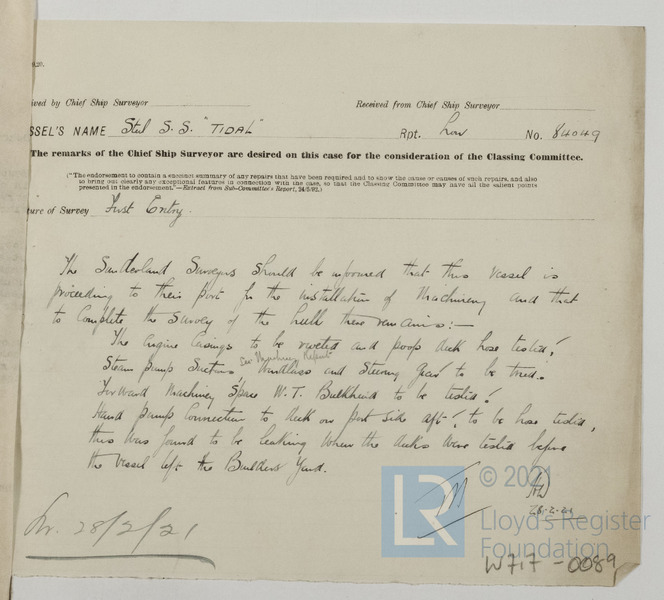 1920.
ived by Chief Ship Surveyor
Received from Chief Ship Surveyor
SSEL'S NAME Steel S.S. "TIDAL" Rpt. Lon No. 84049
The remarks of the Chief Ship Surveyor are desired on this case for the consideration of the Classing Committee.
("The endorsement to contain a succinct summary of any repairs that have been required and to show the cause or causes of such repairs, and also
to bring out clearly any exceptional features in connection with the case, so that the Classing Committee may have all the salient points
presented in the endorsement."—Extract from Sub-Committee's Report, 24/5/92.)
ture of Survey First Entry.
The Sunderland Surveyors should be informed that this vessel is
proceeding to their port for the installation of Machinery and that
to complete the survey of the hull there remains:—
The Engine Casings to be riveted and poop deck hose tested!
See Machinery Report
Steam pump Suctions Windlass and Steering Gear to be tried.
Forward Machinery Space W.T. Bulkhead to be tested!
Hand pump Connection to deck on port side aft! to be hose tested,
this was found to be leaking when the decks were tested before
the vessel left the Builders Yard.
28/2/21
28-2-21
LR
© 2021
Lloyd's Register
Foundation
W717-0089